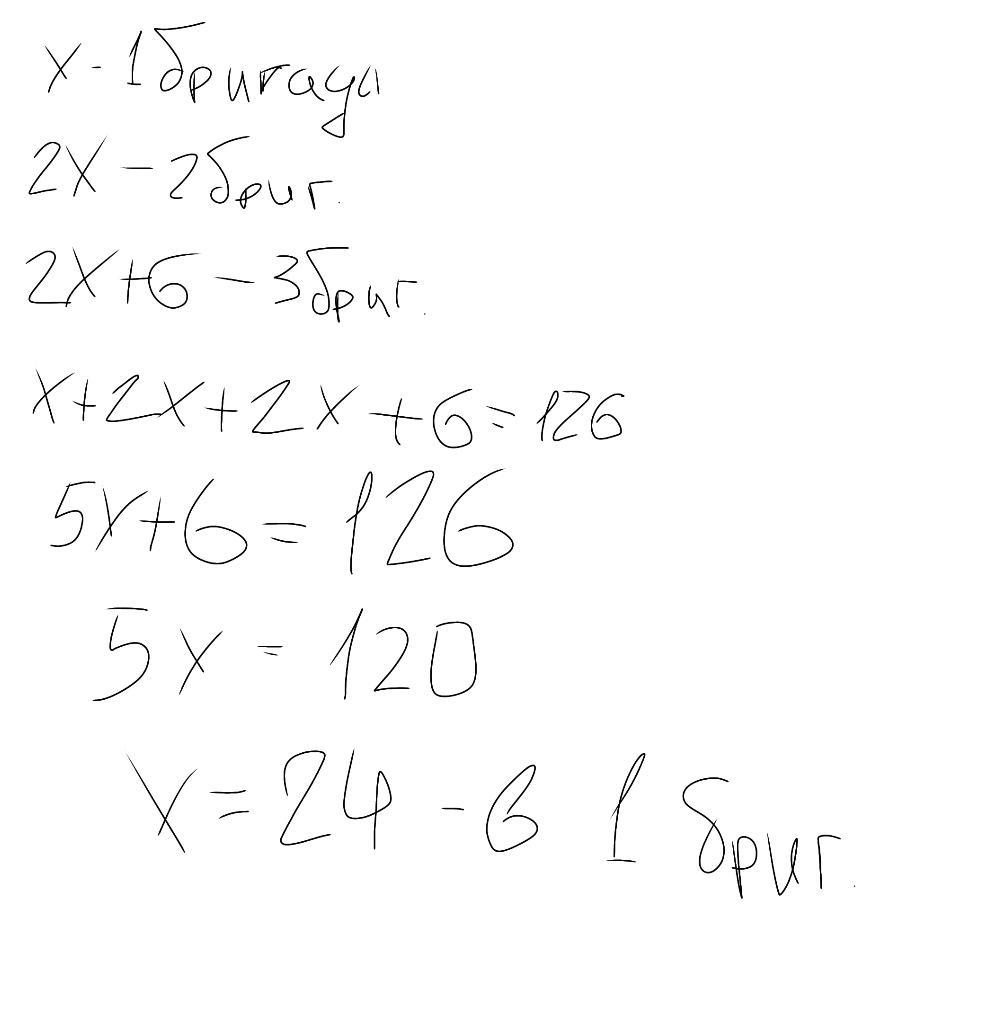 x - 1 бригада
2x - 2 бриг.
2x+6 - 3 бриг.
x+2x+2x+6=126
5x+6=126
5x=120
x=24 - в 1 бриг.